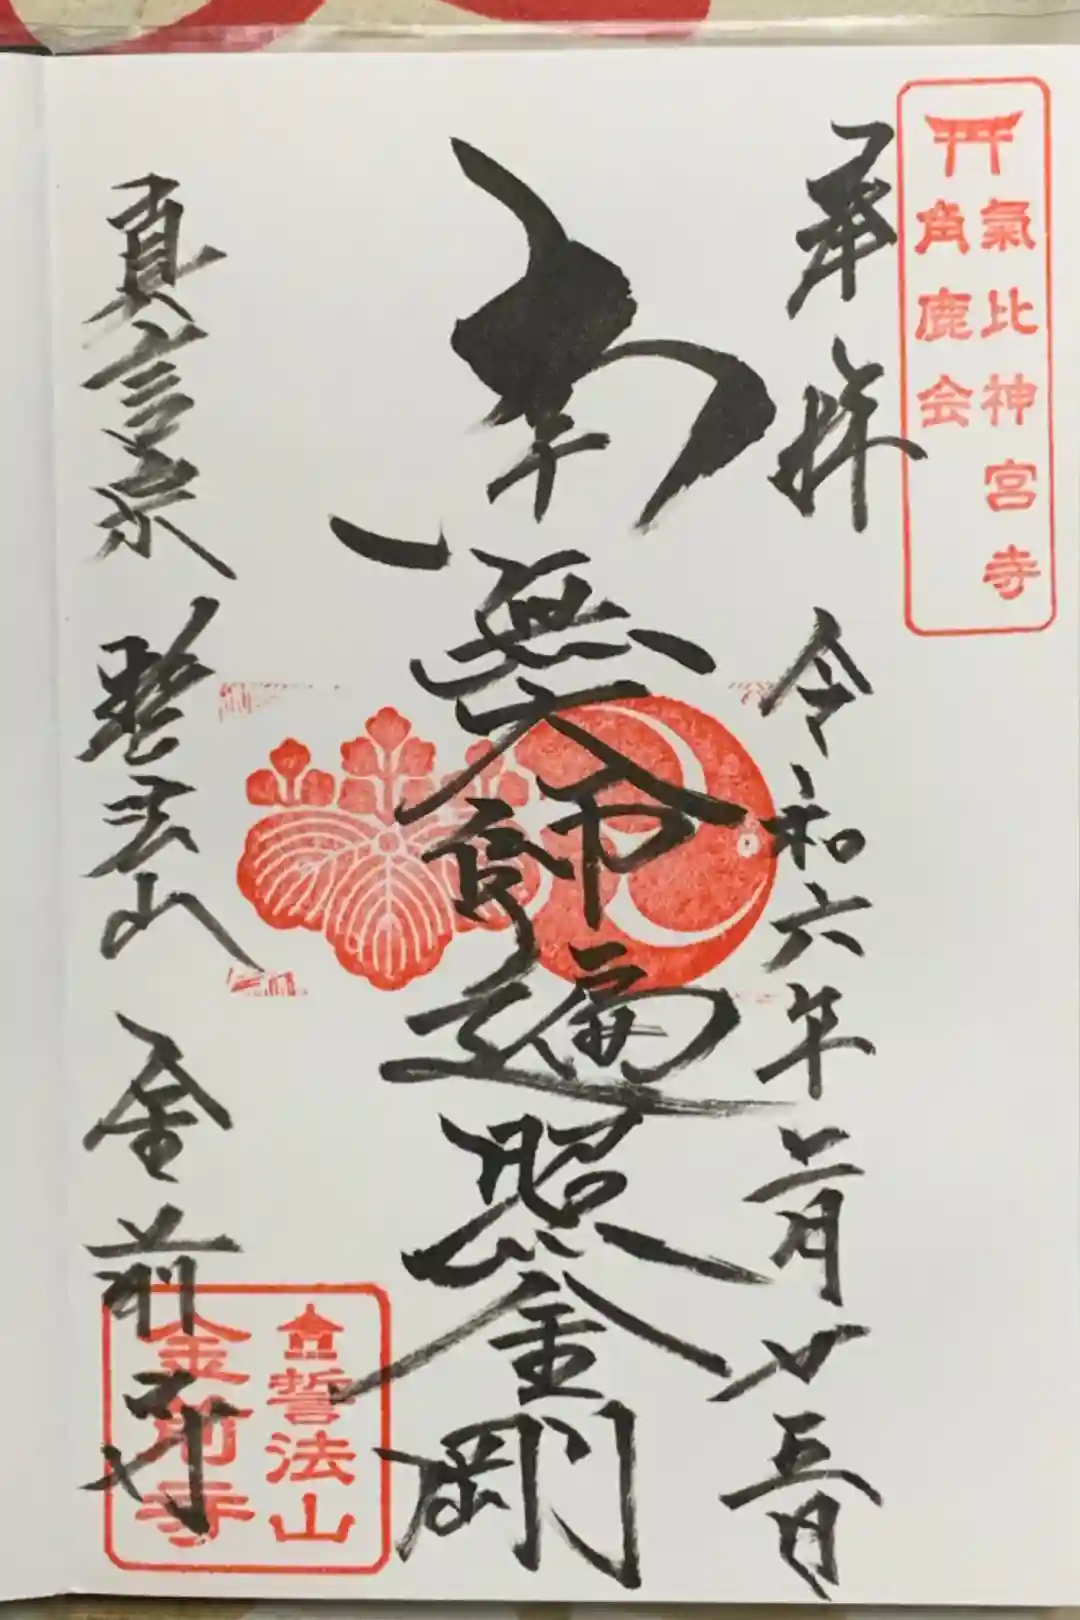 氣比神宮寺
角鹿会
奉拝 令和六年二月廿五日
南無大師遍照金剛
真言宗 誓法山 金前寺
誓法山
金前寺